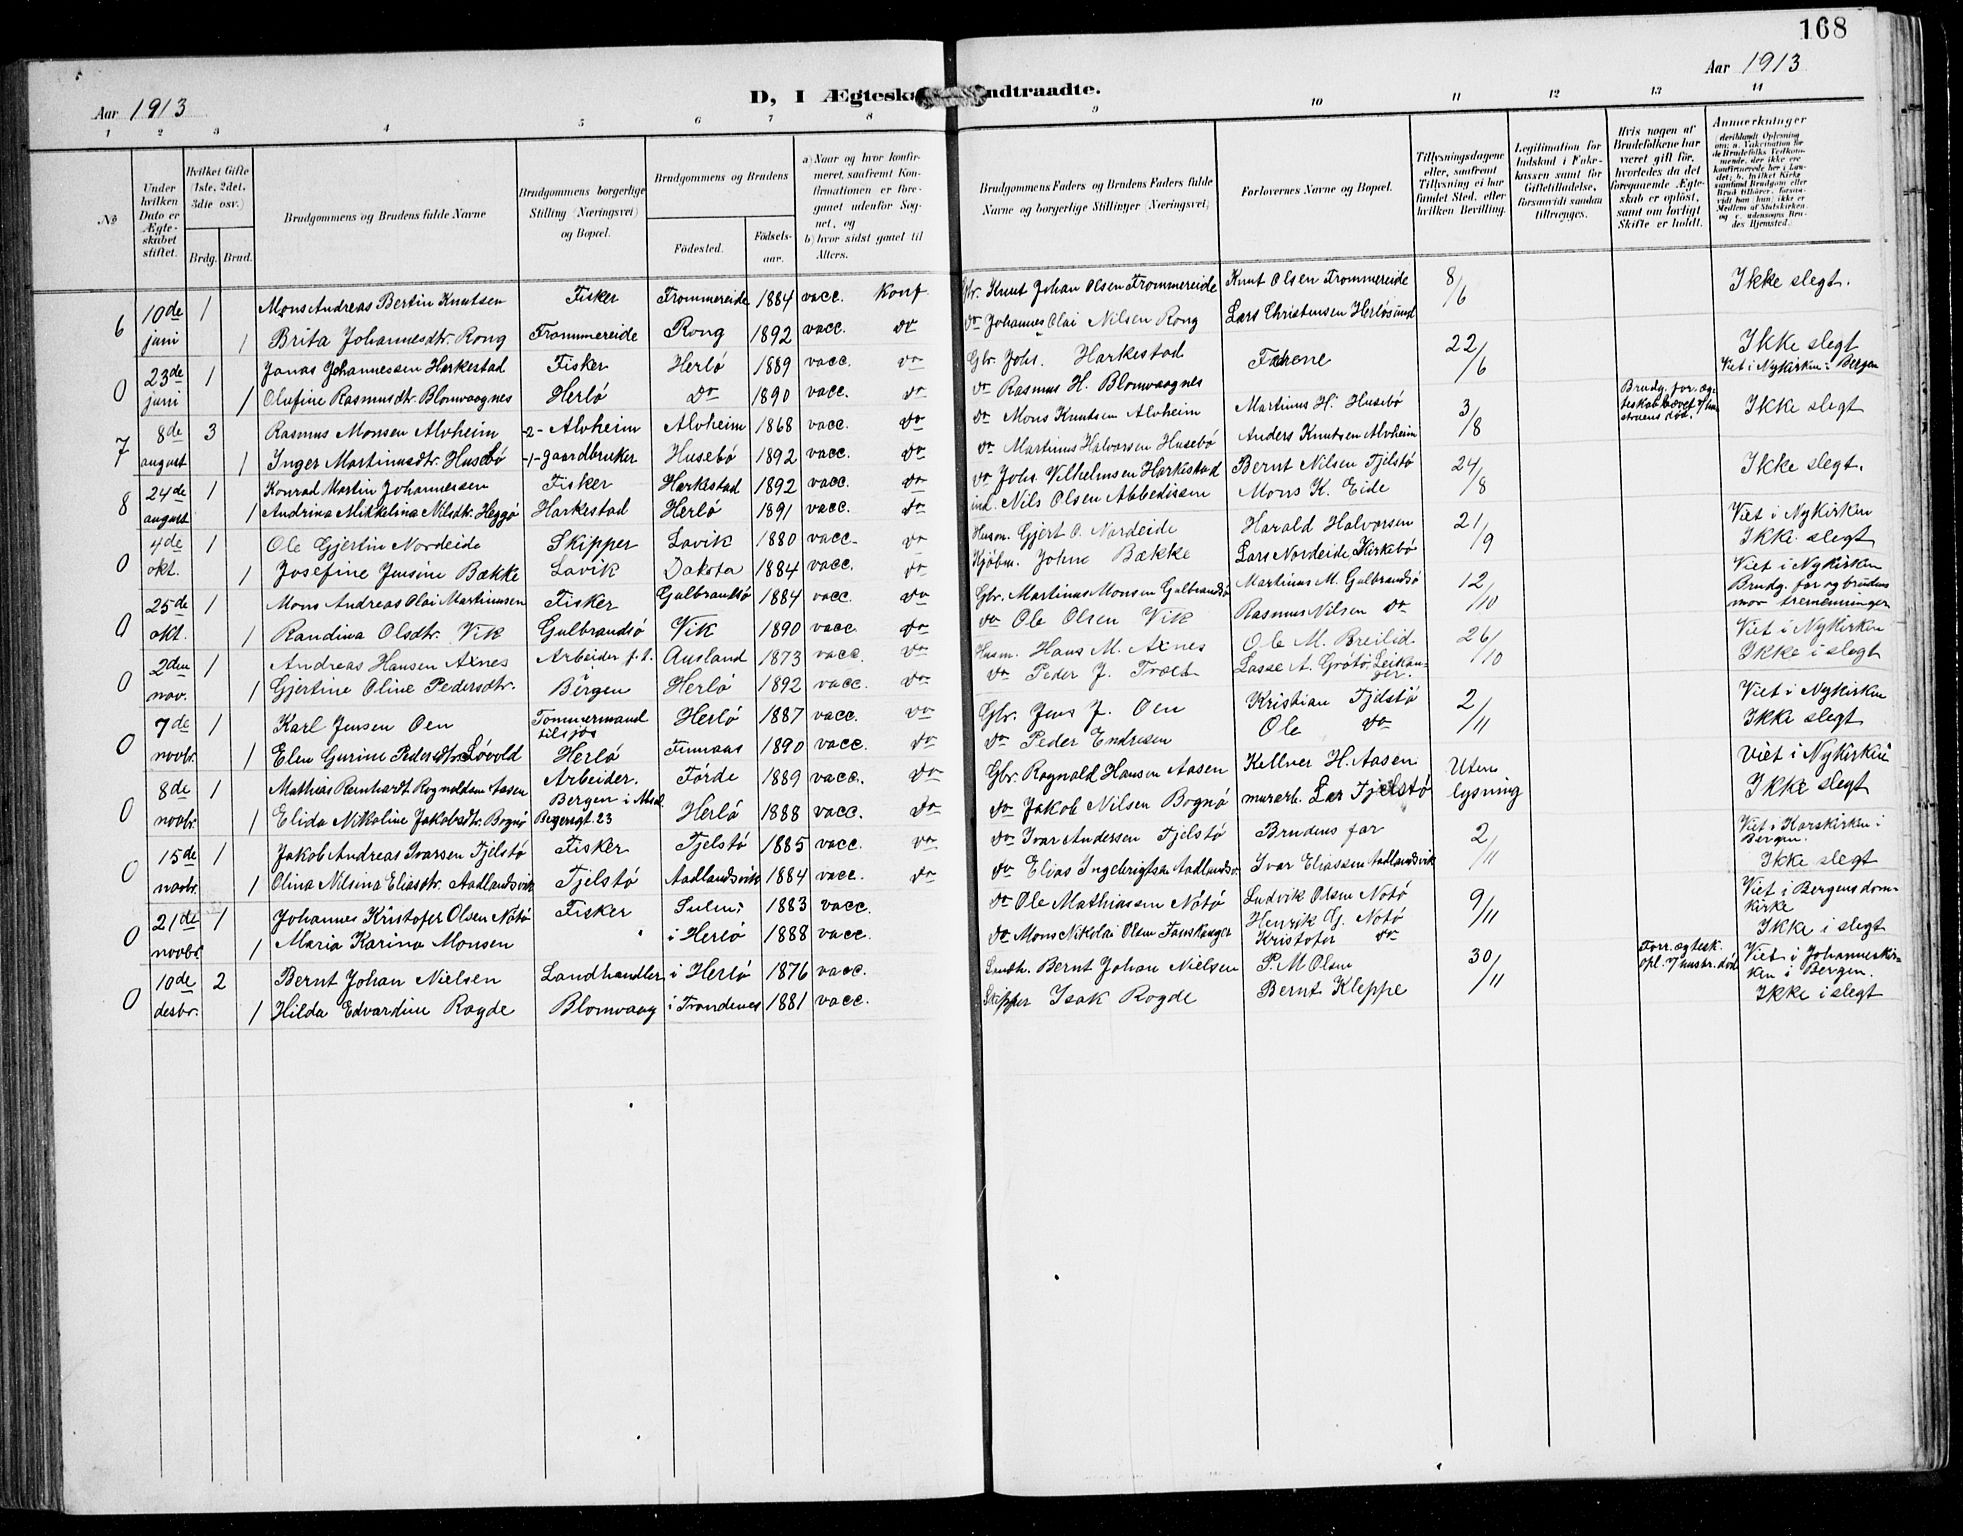 168
Aar 1913
Aar 1913
D, I Ægteska ndtraadte.
1 2 3 4 5 6 7 8 9 10 11 12 13 14
No
Under hvilken Dato er Ægteskabet stiftet.
Hvilket Gifte 1ste, 2det, 3die osv.)
Brdg. Brud.
Brudgommens og Brudens fulde Navne
Brudgommens borgerlige Stilling (Næringsvei) og Bopæl.
Brudgommens og Brudens
Födested.
Födselsaar.
a) Naar og hvor konfirmeret, saafremt Konfirmationen er foregaaet udenfor Sognet, og
b) hvor sidst gaaet til Alters.
Brudgommens Faders og Brudens Faders fulde Navne og borgerlige Stillinger (Næringsvei)
Forlovernes Navne og Bopæl.
Tillysningsdagene eller, saafremt Tillysning ei har fundet Sted, efter hvilken Bevilling.
Legitimation for Indskud i Enkekassen samt for Giftetilladelse, forsaavidt saadan tiltrænges.
Hvis nogen af Brudefolkene har været gift för, hvorledes da det foregaaende Ægteskab er oplöst, samt om lovligt Skifte er holdt.
Anmærkninger
(deriblandt Oplysning om: a. Vakcination for de Brudefolks Vedkommende, der ikke ere konfirmerede her i Landet; b. hvilket Kirkesamfund Brudgom eller Brud tilhører, forsaavidt han (hun) ikke er Medlem af Statskirken og c. udensogns Brudes Hjemsted.
6 10de 1 Mons Andreas Bertin Knutsen Fisker Frommereide 1884 vacc. Konf. Gbr. Knut Johan Olsen Frommereide Knut Olsen Frommereide 8/6 Ikke slegt.
juni 1 Brita Johannesdtr. Rong Frommereide Rong 1892 vacc. do do Johannes Olai Nilsen Rong Lars Christensen Herlösund
0 23de 1 Jonas Johannessen Harkestad Fisker Herlö 1889 vacc. do Gbr. Johs. Harkestad Fedrene 22/6 Ikke slegt
juni 1 Olufine Rasmusdtr. Blomvaagnes Herlö do 1890 vacc. do do Rasmus H. Blomvaagnes Viet i Nykirken i Bergen
7 8de 3 Rasmus Monsen Alvheim -2- Alvheim Alvheim 1868 vacc. do do Mons Knutsen Alvheim Martinus H. Husebö 3/8 Brudg. for. ægteskab hævet v/hustruens död. Ikke slegt
august 1 Inger Martinusdtr. Husebö -1- gaardbruker Husebö 1892 vacc. do do Martinus Halvorsen Husebö Anders Knutsen Alvheim
8 24de 1 Konrad Martin Johannessen Fisker Harkestad 1892 vacc. do do Johs. Vilhelmsen Harkestad Bernt Nilsen Tjelstö 24/8 Ikke slegt.
august 1 Andrina Mikkelina Nilsdtr. Heggö Harkestad Herlö 1891 vacc. do ind. Nils Olsen Abbedissen Mons K. Eide
0 4de 1 Ole Gjertin Nordeide Skipper Lavik 1880 vacc. do Husm. Gjert O. Nordeide Harald Halvorsen 21/9 Viet i Nykirken
okt. 1 Josefine Jensine Bække Lavik Dakota 1884 vacc. do Kjöbm. Johne Bække Lars Nordeide Kirkebö Ikke slegt
0 25de 1 Mons Andreas Olai Martinusen Fisker Gulbrandsö 1884 vacc. do Gbr. Martinus Monsen Gulbrandsö Martinus M. Gulbrandsö 12/10 Viet i Nykirken Brudg. far og brudens mor tremenninger
okt. 1 Randina Olsdtr. Vik Gulbrandsö Vik 1890 vacc. do do Ole Olsen Vik Rasmus Nilsen do
0 2den 1 Andreas Hansen Axnes Arbeider f.t. Ausland 1873 vacc. do Husm. Hans M. Axnes Ole M. Breilid 26/10 Viet i Nykirken
nov. 1 Gjertine Oline Pedersdtr. Bergen Herlö 1892 vacc. do do Peder J. Træet Lasse A. Grötö, Leikanger. Ikke i slegt
0 7de 1 Karl Jensen Oen Tömmermand tilsjös Herlö 1887 vacc. do Gbr. Jens J. Oen Kristian Tjelstö 2/11 Viet i Nykirken
novbr. 1 Elen Gurine Pedersdtr. Lövold Herlö Finnaas 1890 vacc. do do Peder Endresen Ole do Ikke slegt
0 8de 1 Mathias Reinhardt Rognaldsen Aasen Arbeider. Förde 1889 vacc. do Gbr. Rognald Hansen Aasen Kellner H. Aasen Uten lysning Viet i Nykirken
novbr. 1 Elida Nikoline Jakobsdtr. Bognö Bergen i Msd. 23 Herlö 1888 vacc. do do Jakob Nilsen Bognö murarb. Lar Tjelstö Ikke slegt
0 15de 1 Jakob Andreas Ivarsen Tjelstö Fisker Tjelstö 1885 vacc. do do Ivar Andersen Tjelstö Brudens far 2/11 Viet i Korskirken i Bergen.
novbr. 1 Olina Nilsina Eliasdtr. Aadlandsvik Tjelstö Aadlandsvik 1884 vacc. do do Elias Ingebrigtsen Aadlandsv. Ivar Eliassen Aadlandsvik Ikke slegt
0 21de 1 Johannes Kristofer Olsen Nötö Fisker Sulen i 1883 vacc. do Ole Mathiassen Nötö Ludvik Olsen Nötö 9/11 Viet i Bergens domkirke
novbr. 1 Maria Karina Monsen i Herlö 1888 vacc. do Mons Nikolai Olsen Toneskanger Henrik G. Nötö Kristofer do Ikke i slegt
0 10de 2 Bernt Johan Nielsen Landhandler i Herlö 1876 vacc. Landh. Bernt Johan Nielsen P. M Olsen 30/11 Forr. ægtesk. opl. v/hustr. död Viet i Johanneskirken i Bergen.
desbr. 1 Hilda Edvardine Rogde Blomvaag i Trondenes 1881 vacc. Skipper Isak Rogde Bernt Kleppe Ikke i slegt